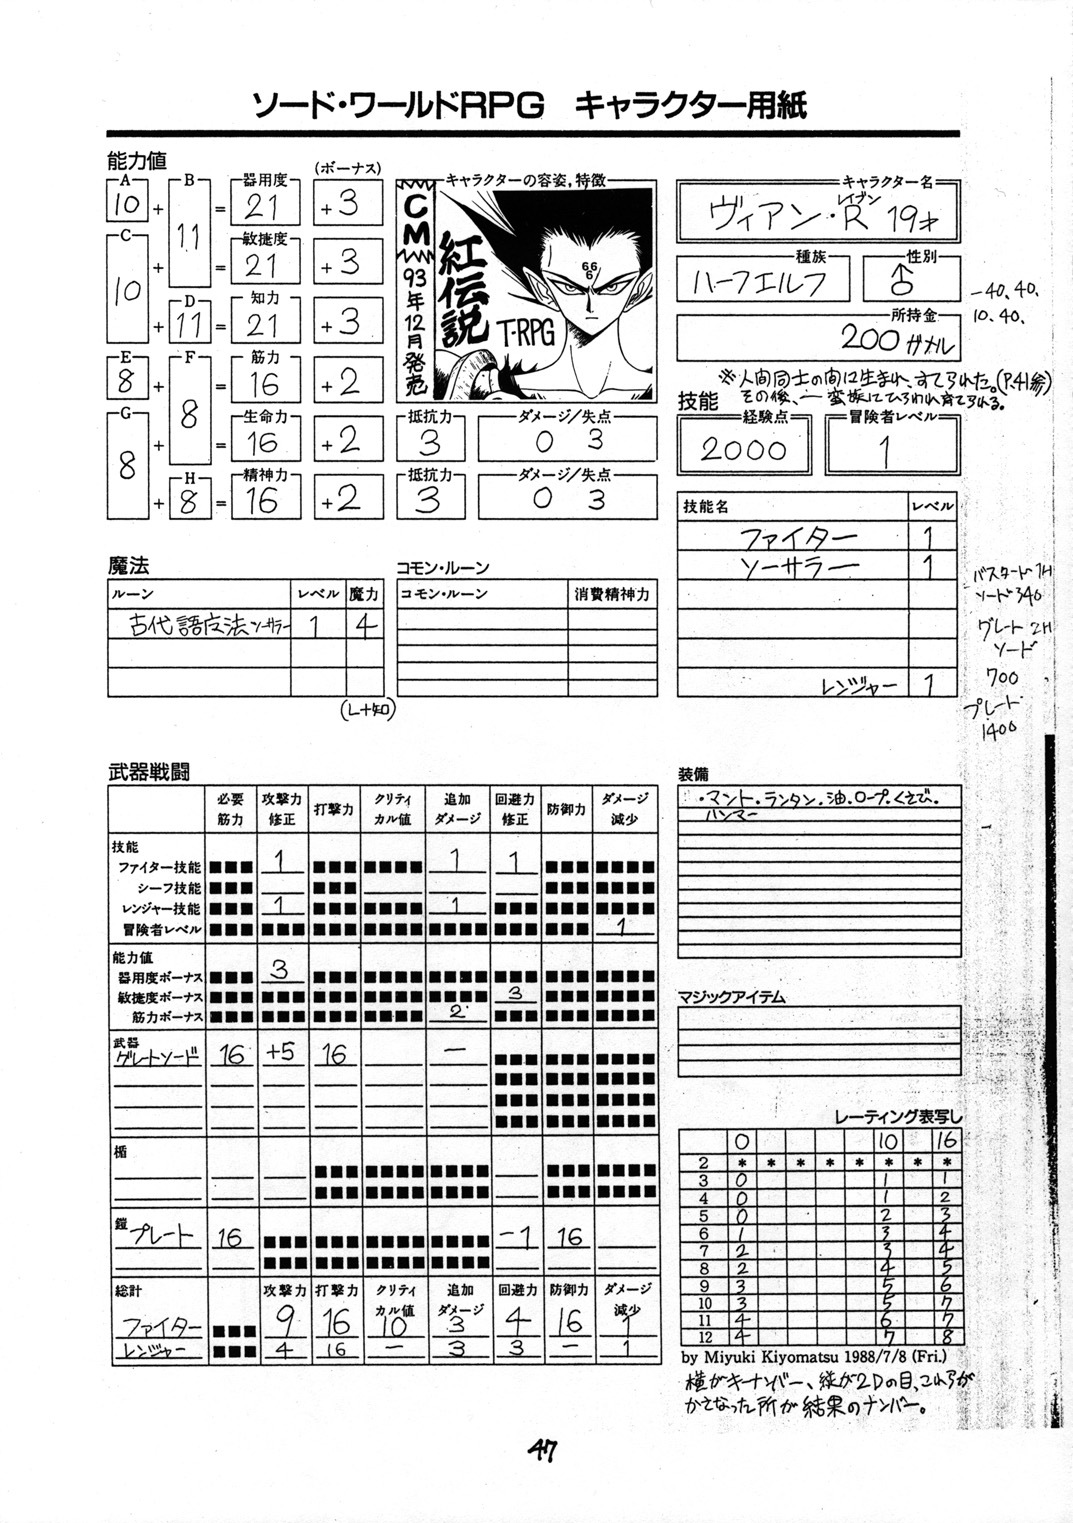 ソード・ワールドRPG キャラクター用紙
能力値
(ボーナス)
A 10 + B 11 = 器用度 21 +3
C 10 + = 敏捷度 21 +3
+ D 11 = 知力 21 +3
E 8 + F 8 = 筋力 16 +2
G 8 + = 生命力 16 +2 抵抗力 3 ダメージ/失点 0 3
+ H 8 = 精神力 16 +2 抵抗力 3 ダメージ/失点 0 3
キャラクターの容姿,特徴
CM
93年12月発売
紅伝説
T-RPG
666
キャラクター名
レイブン
ヴィアン・R 19才
種族 ハーフエルフ
性別 ♂
所持金
200 ガメル
-40、40、
10、40、
※人間同士の間に生まれ、すてられた。(P.41参)
その後、一蛮族にひろわれ育てられる。
技能
経験点 2000
冒険者レベル 1
技能名 レベル
ファイター 1
ソーサラー 1
レンジャー 1
バスタード 1H
ソード 340
グレート 2H
ソード
700
プレート
1400
魔法
ルーン レベル 魔力
古代語魔法 ソーサラー 1 4
(L+知)
コモン・ルーン
コモン・ルーン 消費精神力
武器戦闘
必要筋力 攻撃力修正 打撃力 クリティカル値 追加ダメージ 回避力修正 防御力 ダメージ減少
技能
ファイター技能 1 1 1
シーフ技能
レンジャー技能 1 1
冒険者レベル 1
能力値
器用度ボーナス 3
敏捷度ボーナス 3
筋力ボーナス 2
武器
グレートソード 16 +5 16 ー
楯
鎧 プレート 16 -1 16
総計 攻撃力 打撃力 クリティカル値 追加ダメージ 回避力 防御力 ダメージ減少
ファイター 9 16 10 3 4 16 1
レンジャー 4 16 ー 3 3 ー 1
装備
・マント・ランタン・油・ロープ・くさび・
ハンマー
マジックアイテム
レーティング表写し
0 10 16
2 * * * * * * * *
3 0 1 1
4 0 1 2
5 0 2 3
6 1 3 4
7 2 3 4
8 2 4 5
9 3 5 6
10 3 5 7
11 4 6 7
12 4 7 8
by Miyuki Kiyomatsu 1988/7/8 (Fri.)
横がキーナンバー、縦が2Dの目、これらが
かさなった所が結果のナンバー。
47